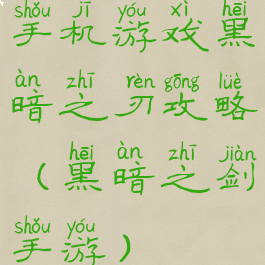 shǒu jī yóu xì hēi
手机游戏黑
àn zhī rèn gōng lüè
暗之刃攻略
hēi àn zhī jiàn
（黑暗之剑
shǒu yóu
手游）